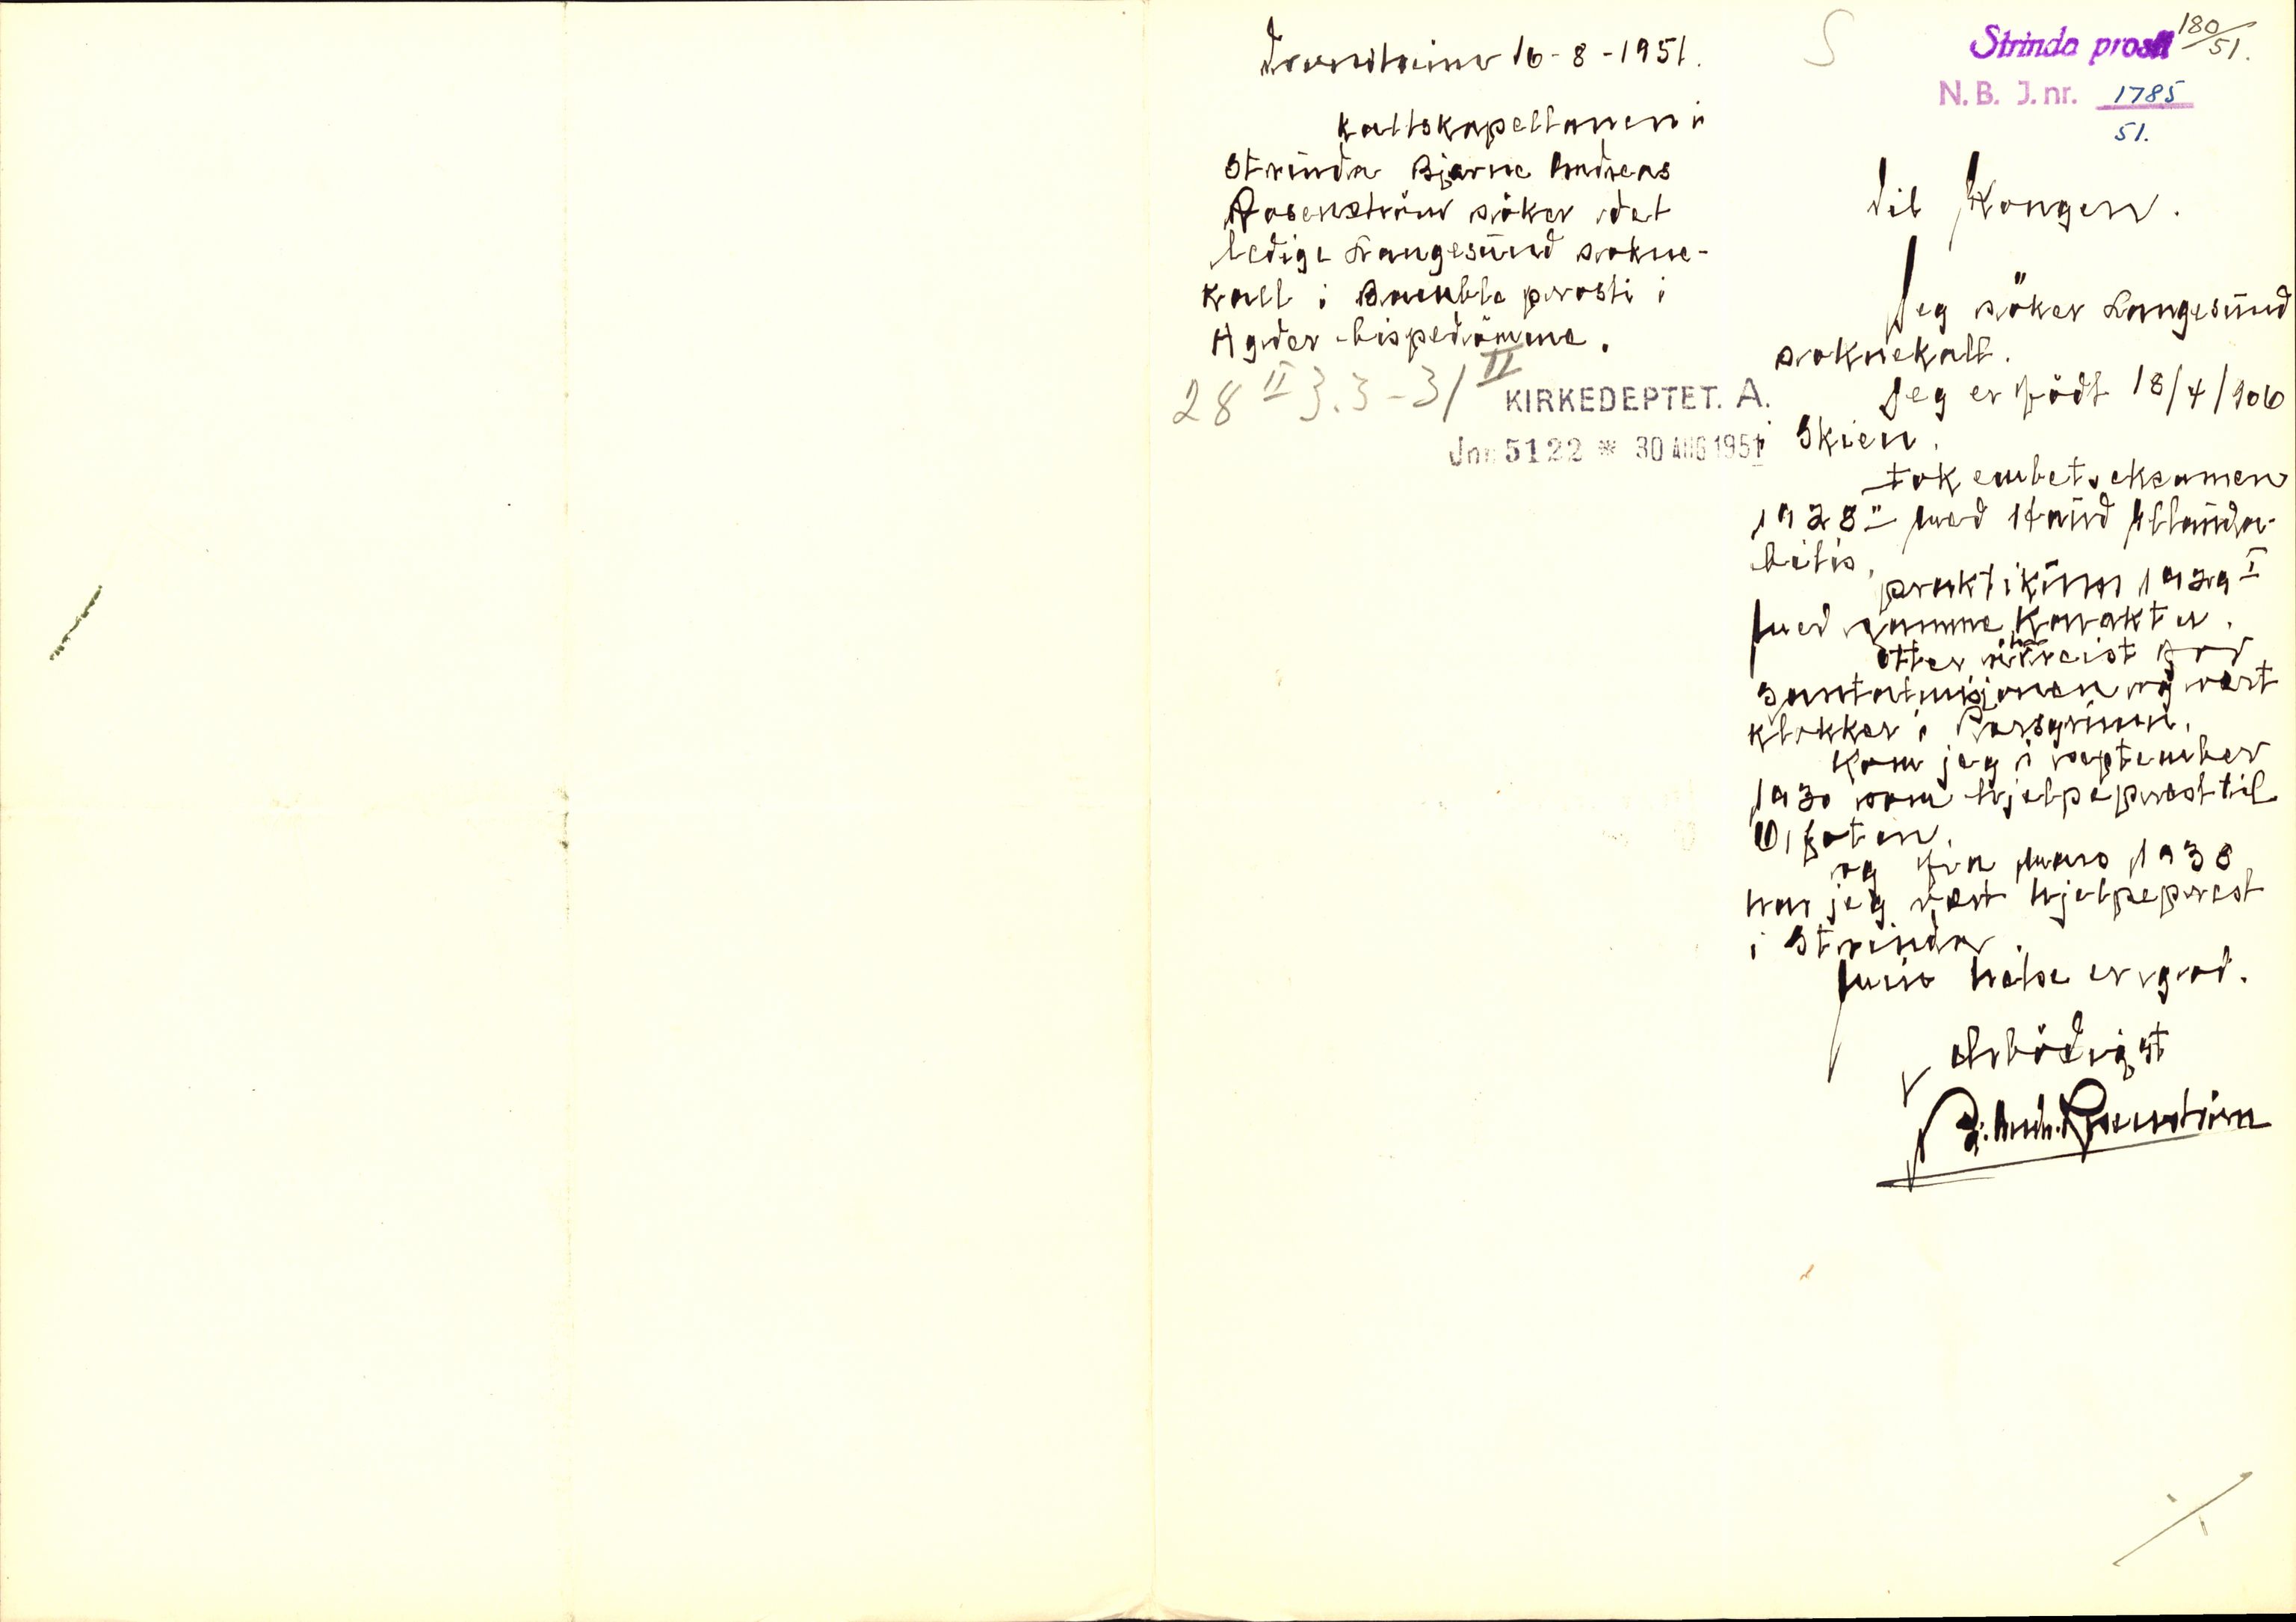 Trondheim 16-8-1951.
Kallskapellanen i
Strinda Bjarne Andreas
Rosenström söker det
ledige Langesund sokne-
kall i Bamble prosti i
Agder bispedömme.
28 II 3.3 - 31 II
KIRKEDEPTET. A.
Jnr 5122 * 30 AUG 1951
S
Strinda prosti 180/51.
N.B. J.nr. 1785
51.
Til Kongen.
Jeg söker Langesund
soknekall.
Jeg er födt 18/4/906
i Skien.
Tok embetseksamen
1928 II med Haud illauda-
bilis,
praktikum 1929 I
med samme karakter.
Etter å ha reist for
Santalmisjonen og vært
klokker i Porsgrunn,
kom jeg i september
1930 som hjelpeprest til
Ofoten,
og fra mars 1938
har jeg vært hjelpeprest
i Strinda.
Min helse er god.
Ærbödigst
Bj. Andr. Rosenström